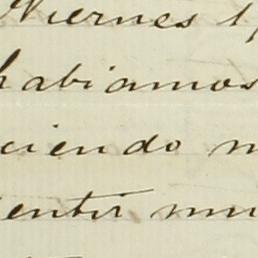 Viernes 1
habiamos
ciendo m
entir mu